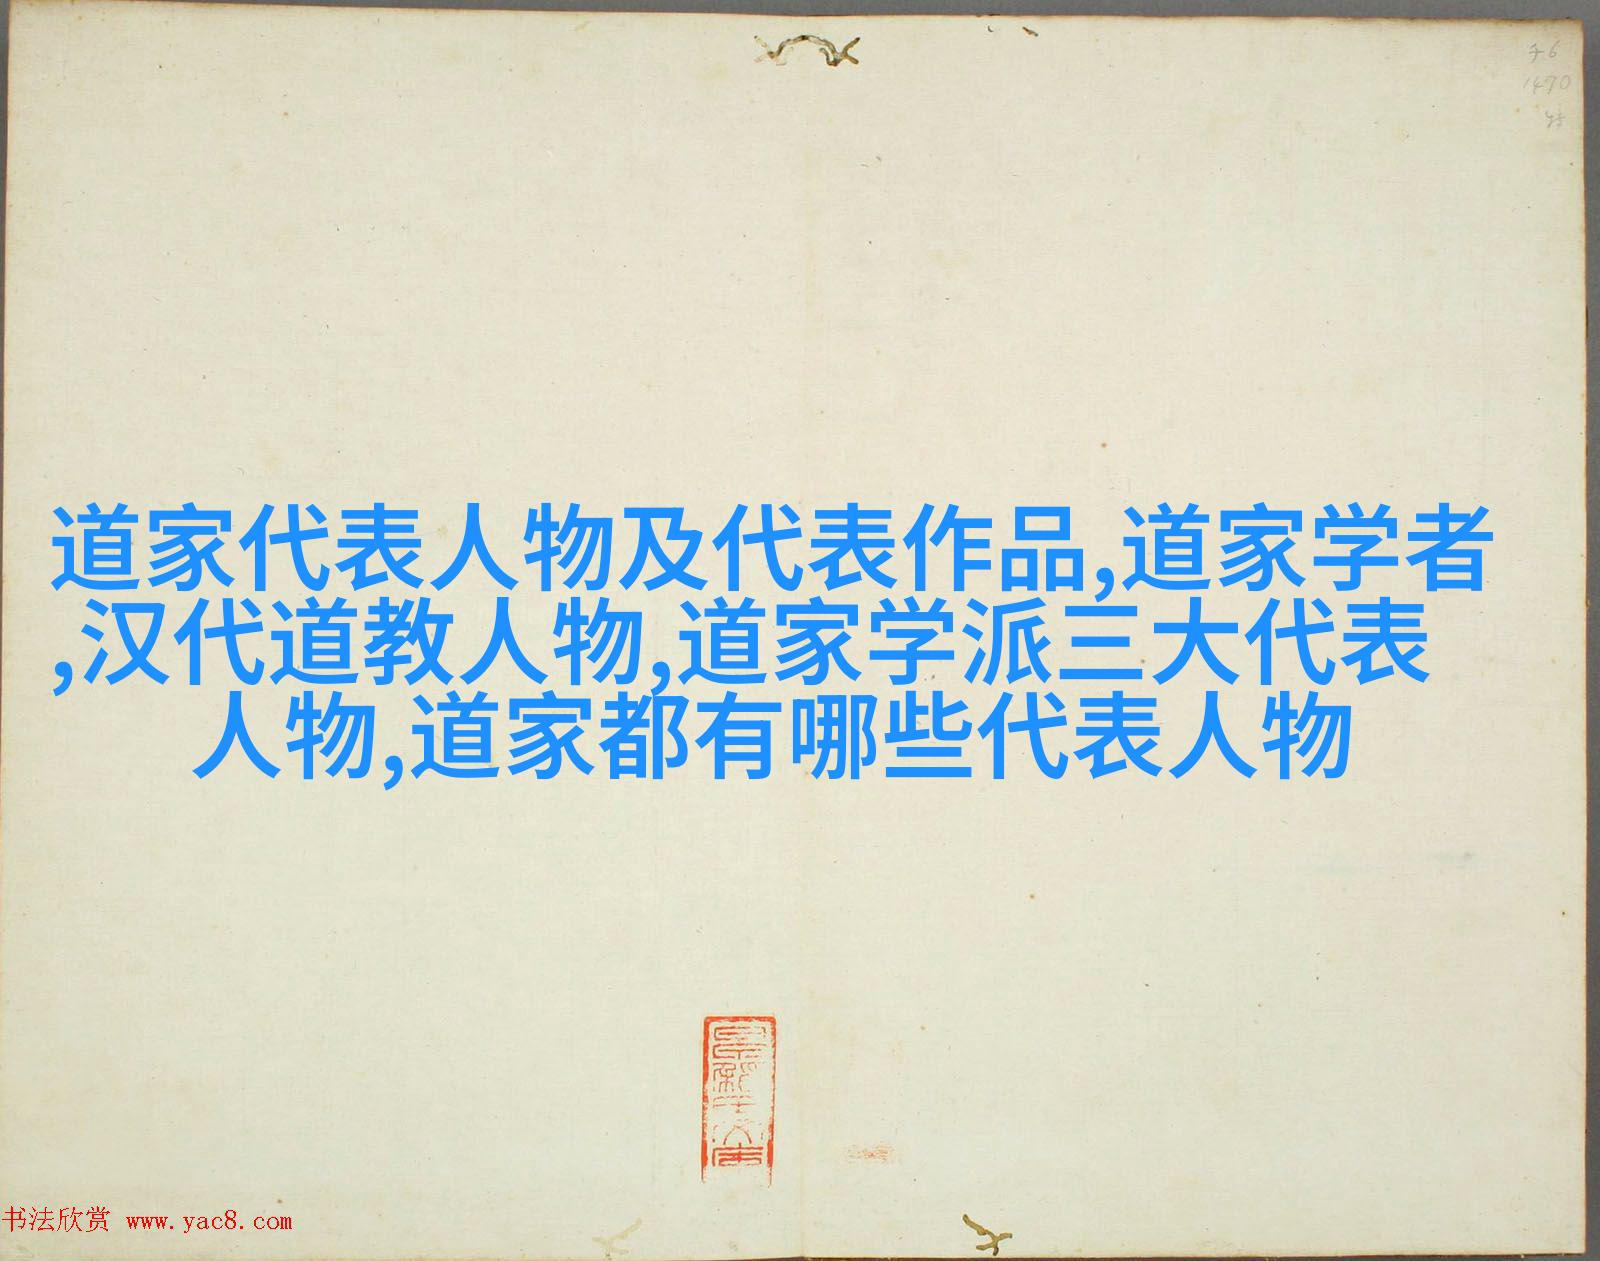 1470
道家代表人物及代表作品,道家学者
,汉代道教人物,道家学派三大代表
人物,道家都有哪些代表人物
书法欣赏 www.yac8.com